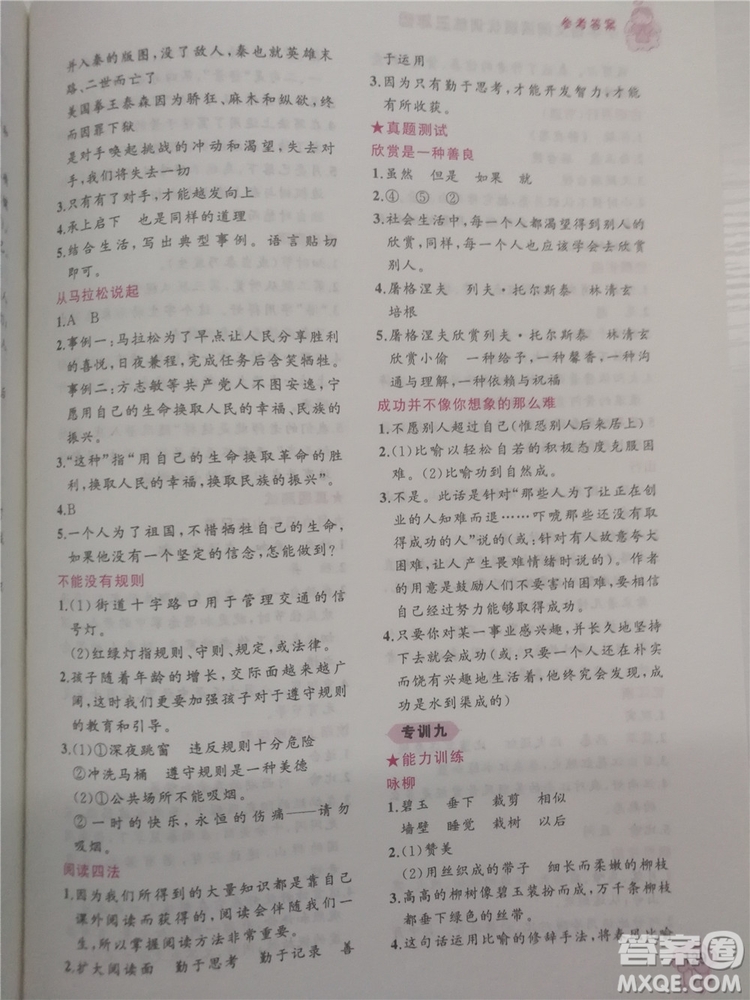 参考答案
并入秦的版图,没了敌人,秦也就英雄末
路、二世而亡。
美国拳王泰森因为骄狂、麻木和纵欲,终
而因罪下狱
是对手唤起挑战的冲动和渴望,失去对
手,我们将失去一切
3.只有有了对手,才能越发向上
4.承上启下 也是同样的道理
5.结合生活,写出典型事例。语言贴切
即可。
从马拉松说起
1.A B
2.事例一:马拉松为了早点让人民分享胜利
的喜悦,日夜兼程,完成任务后含笑牺牲。
事例二:方志敏等共产党人不图安逸,宁
愿用自己的生命换取人民的幸福、民族的
振兴。
3.“这种”指“用自己的生命换取革命的胜
利,换取人民的幸福、民族的振兴”。
4.B
5.一个人为了祖国,不惜牺牲自己的生命,
如果他没有一个坚定的信念,怎能做到?
不能没有规则
1.(1)街道十字路口用于管理交通的信
号灯。
(2)红绿灯指规则、守则、规定,或法律。
2.孩子随着年龄的增长,交际面越来越广
阔,这时我们更要加强孩子对于遵守规则
的教育和引导。
3.(1)①深夜跳窗 违反规则十分危险
②冲洗马桶 遵守规则是一种美德
(2)①公共场所不能吸烟。
②一时的快乐,永恒的伤痛——请勿
吸烟。
阅读四法
1.因为我们所学的大量知识都是靠着
课外阅读而获得的,阅读会伴随我们一
生,所以掌握阅读方法非常重要。
2.扩大阅读面 勤于思考 勤于记录 善
于运用
3.因为只有勤于思考,才能开发智力,才能
有所收获。
★真题测试
欣赏是一种善良
1.虽然 但是 如果 就
2.④ ⑤ ②
3.社会生活中,每一个人都渴望得到别人的
欣赏,同样,每一个人也应该去欣赏
别人。
4.屠格涅夫 列夫·托尔斯泰 林清玄
培根
5.屠格涅夫欣赏列夫·托尔斯泰 林清玄
欣赏小偷 一种给予,一种馨香,一种沟
通与理解,一种依赖与祝福
成功并不像你想象的那么难
1.不愿别人超过自己(惟恐别人后来居上)
2.(1)比喻以轻松自若的积极态度克服困
难。(2)比喻功到自然成。
3.不是。此话是针对“那些人为了让正在创
业的人知难而退……吓唬那些还没有
取得成功的人”说的(或:针对有人故意夸大
困难,让人产生畏难情绪时所说)。作者
的用意是鼓励人们不要害怕困难,要相信
通过努力能够取得成功。
4.只要你对某一事业感兴趣,并长久地坚持
下去就会成功(或:只要一个人还在朴实
而有兴趣地生活着,他终究会发现,成功
都是水到渠成的)
专训九
★能力训练
咏柳
1.碧玉 垂下 裁剪 相似
墙壁 睡觉 栽树 以后
2.(1)赞美
(2)用丝织成的带子 细长而柔嫩的柳枝
3.高高的柳树像碧玉装扮而成,万千柳枝
都垂下绿色的丝带。
4.这句话运用比喻的修辞手法,将春风比喻
答案圈
MXQE.COM